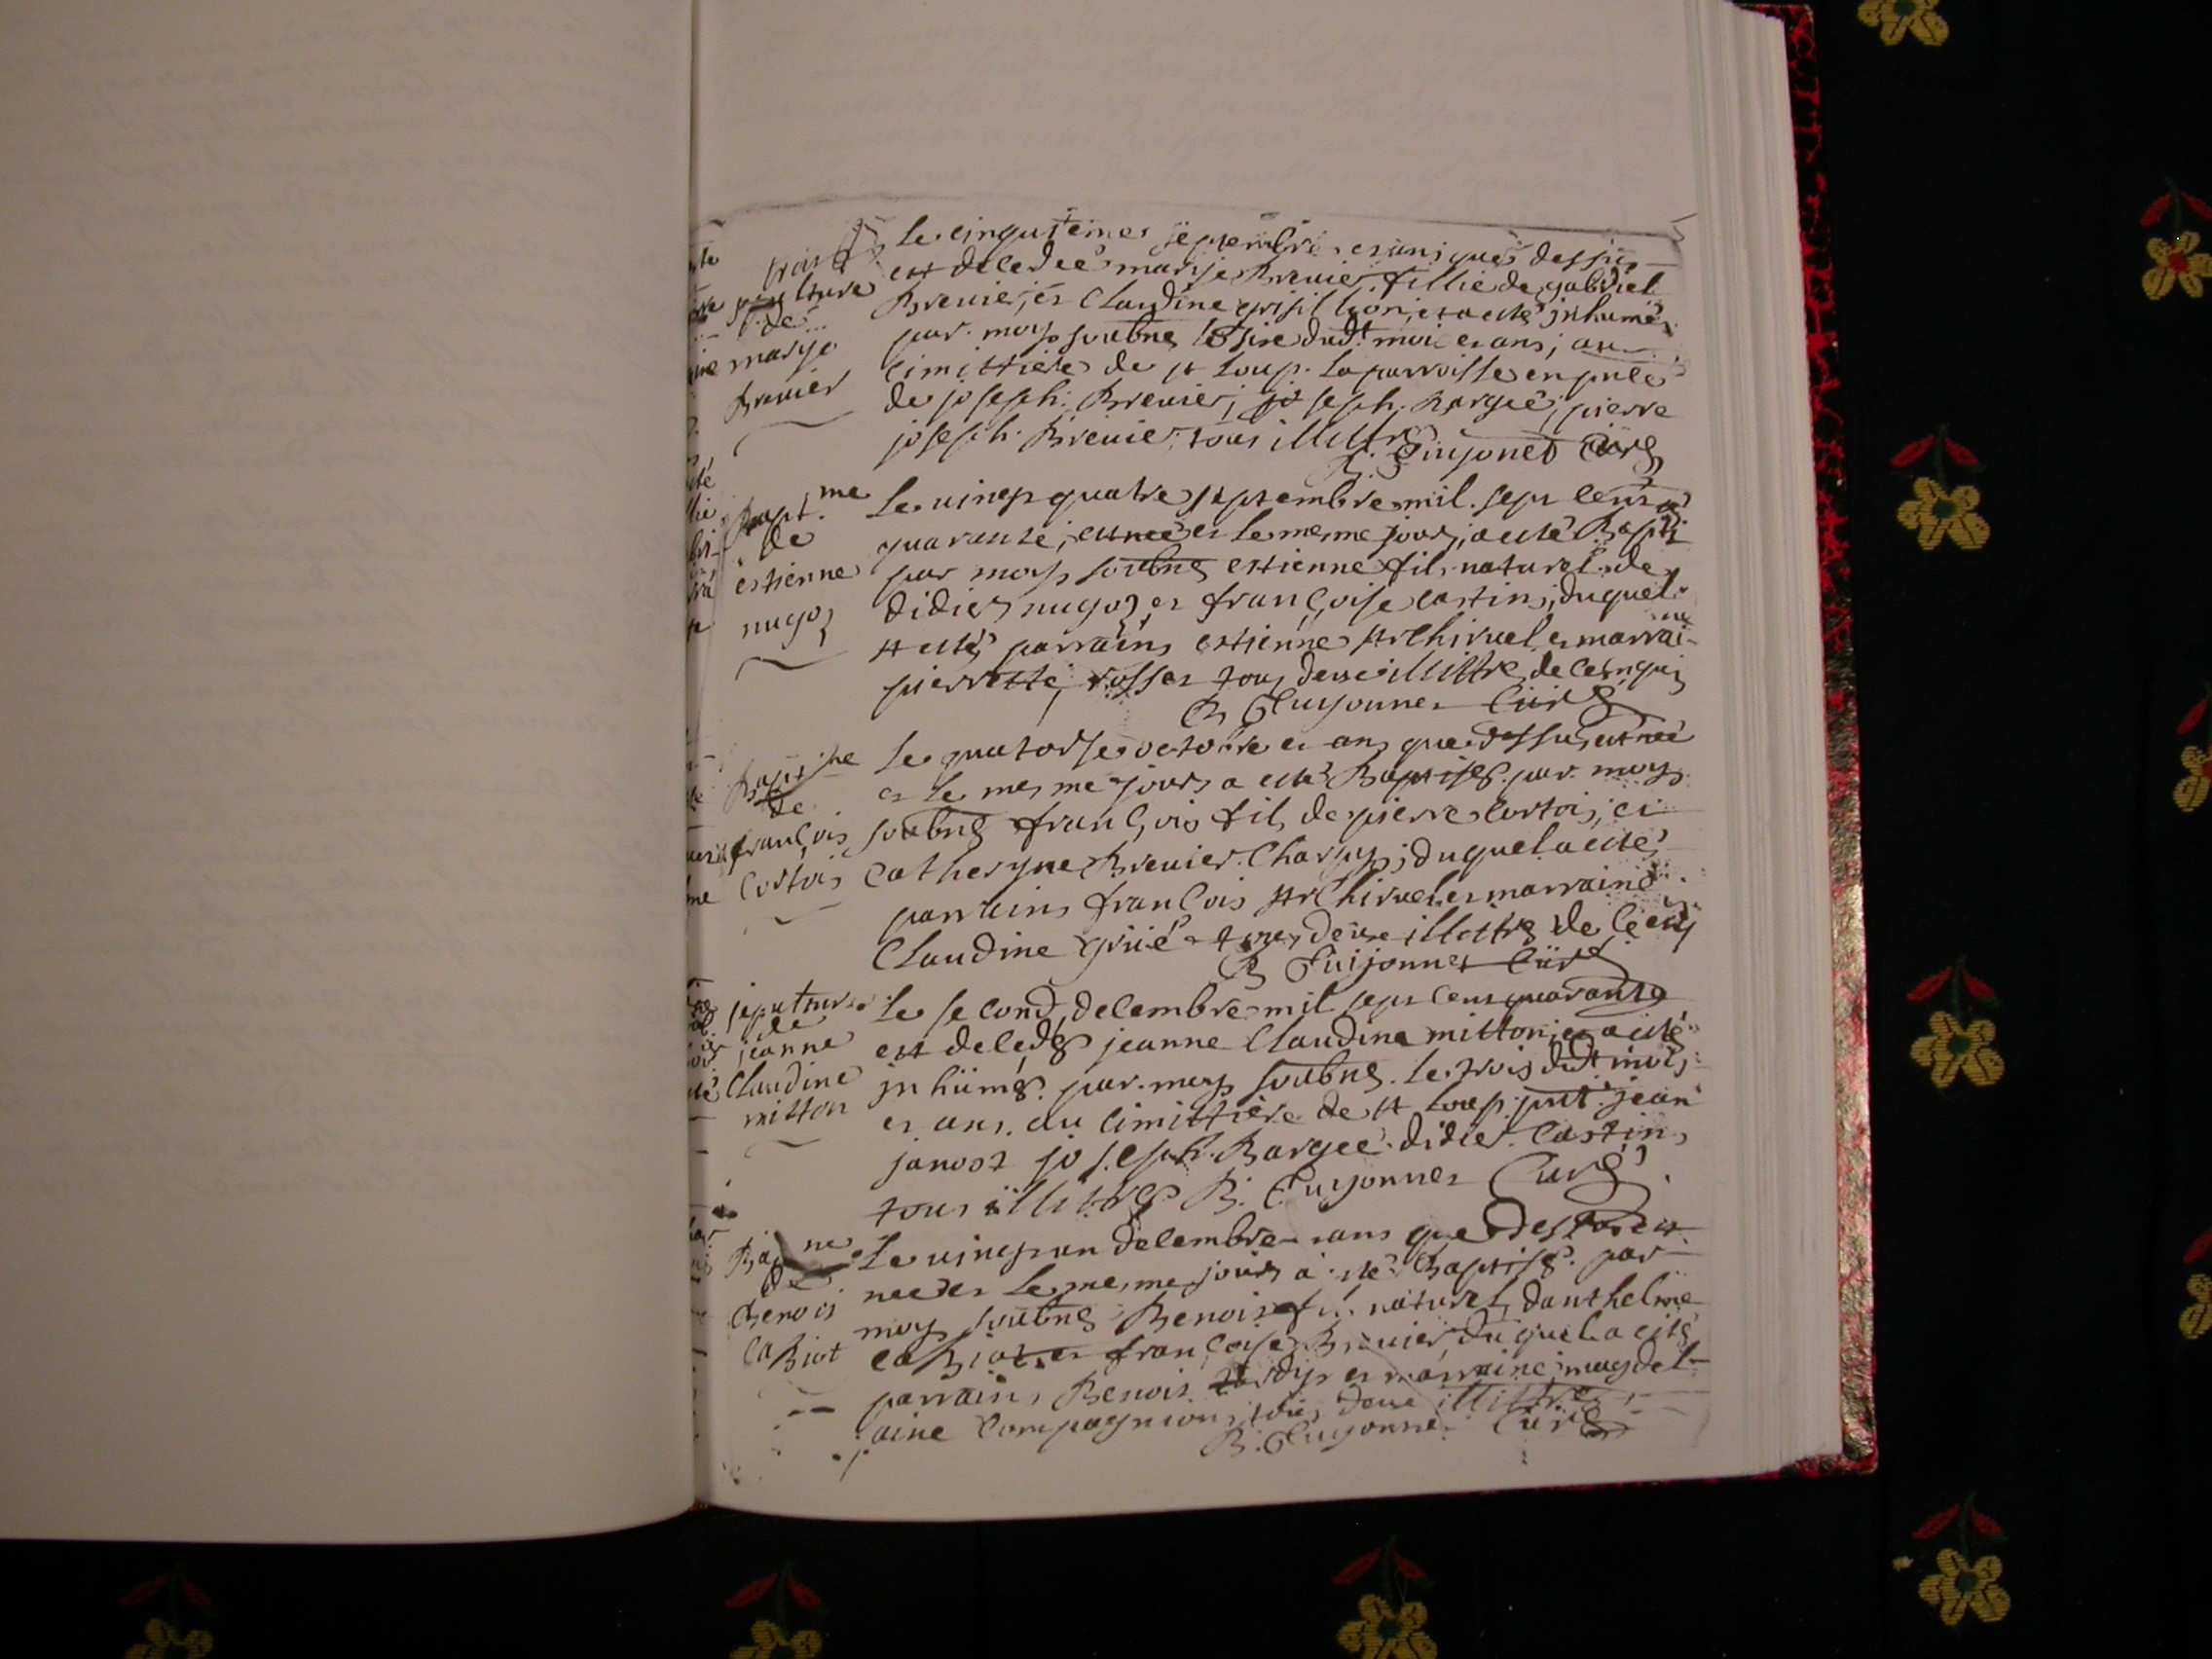 Le cinquieme septembre et ans que dessus
est decedee marye Brevier fillie de gabriel
Brevier, et Claudine grisillion, et a esté inhumé
par moy soubne le sixe dudt moi et ans, au
cimittiere de st Loup. la parroisse en pnce
de joseph. Brevier, joseph. Bargeé, pierre
joseph. Brevier, tous illittre
B. Guyonet Curé
sepulture
de
marye
Brevier
Le vingt quatre septembre mil. sept cent
quarante, est neé et le mesme jour, a esté Bapti
par moy soubne estienne fils naturel de
didier nugoz et françoise castin, duquel
at esté parrain estienne archiruel et marrai-ne
pierrette, rosset tous deux illittre de ce enquis
B Guyonnet Curé
Bapt.me
de
estienne
nugoz
Le quatorse octobre et ans que dessus, est neé
et le mesme jours a esté Baptisé. par. moy
soubné françois fils de pierre Cortois, et
Catheryne Brevier. Charyy, duquel a esté
parrain françois archiruel et marraine
Claudine grué tous deux illittre de ce enq
B Guijonnet Curé
Baptme
de
françois
Cortois
Le second decembre mil sept cent quarante
est decedé jeanne Claudine mitton, et a esté
inhumé. par. moy soubné. Le trois dudt mois
et ans. au cimittiere de st Loup. pnt. jean
janost joseph. Bargeé. didier. Castin
tous illittre B. Guyonnet Curé
sepulture
de
jeanne
Claudine
mitton
Le vingt un decembre ans que dessus est
neé et Le mesme jours a esté Baptisé. par
moy soubné Benois fil naturel danthelme
caBiot et françoise Brevier, duquel a esté
parrain Benois et marraine magdel-
aine Compagnion, tous deux illittre
B. Guyonne. Curé
Bap me
de
Benois
CaBiot